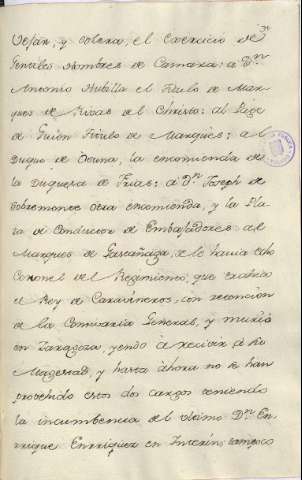 Vejar, y Solera, el Exercicio de
Gentiles Hombres de Camara: a Dn.
Antonio Hubilla el titulo de Mar-
ques de Rivas del Christo: al
de Guion titulo de Marqués: al
Duque de Osuna, la encomienda de
la Duquesa de Frias: a Dn. Joseph de
Sobremonte otra encomienda, y la Pla-
za de Conductor de Embajadores: al
Marques de Gastañaga, se le havia echo
Coronel del Regimiento, que
el Rey de Caravineros, con retencion
de la Comisaria General, y murió
en Zaragoza, yendo a recivir a Su
Magestad, y hasta ahora no se han
provehido estos dos cargos teniendo
la incumbencia del ultimo Dn. En-
rrique Enrriquez en Interin; tampoco